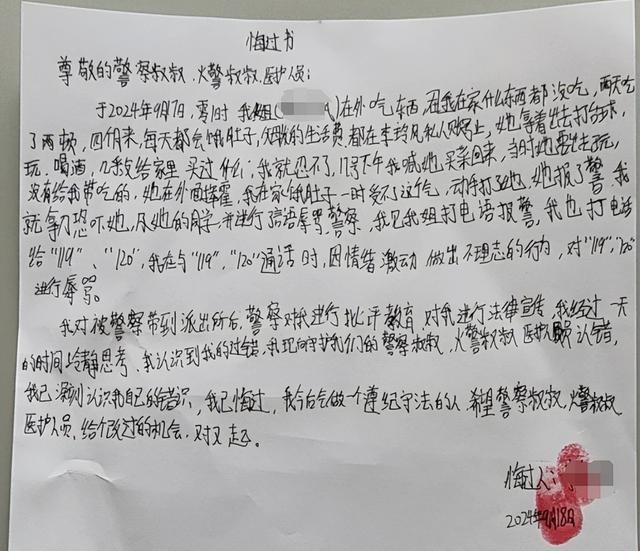 悔过书
尊敬的警察叔叔、火警叔叔、医护人员:
于2024年9月17日,零1时 我姐( A)在外吃东西,因我在家什么东西都没吃,两天吃
了两顿,四个月来,每天都会饿肚子,父母给的生活费 都在李玲风私人账号上,她拿着出去打台球,
玩,喝酒,几乎没给家里 买过什么,我就忍不了,17号下午我喊她买菜回来,当时她要出去玩,
没有给我带吃的,她在外面挥霍,我在家饿肚子一时受不了这个气,动手打了她,她报了警,我
就拿刀恐吓她,及她的同学,并进行言语辱骂警察,我见我姐打电话报警,我也打电话
给"119"、"120",我在与"119","120"通话时,因情绪激动 做出不理志的行为,对"119","120"
进行辱骂。
我对被警察带到派出所后,警察对我进行批评教育,对我进行法律宣传,我经过一天
的时间冷静思考、我认识到我的过错,我现向守护我们的警察叔叔、火警叔叔 医护人员认错,
我已深刻认识我自己的错识,我已悔过,我今后会做一个遵纪守法的人,希望警察叔叔、火警叔叔
医护人员、给个改过的机会,对不起。
悔过人:
2024年9月18日